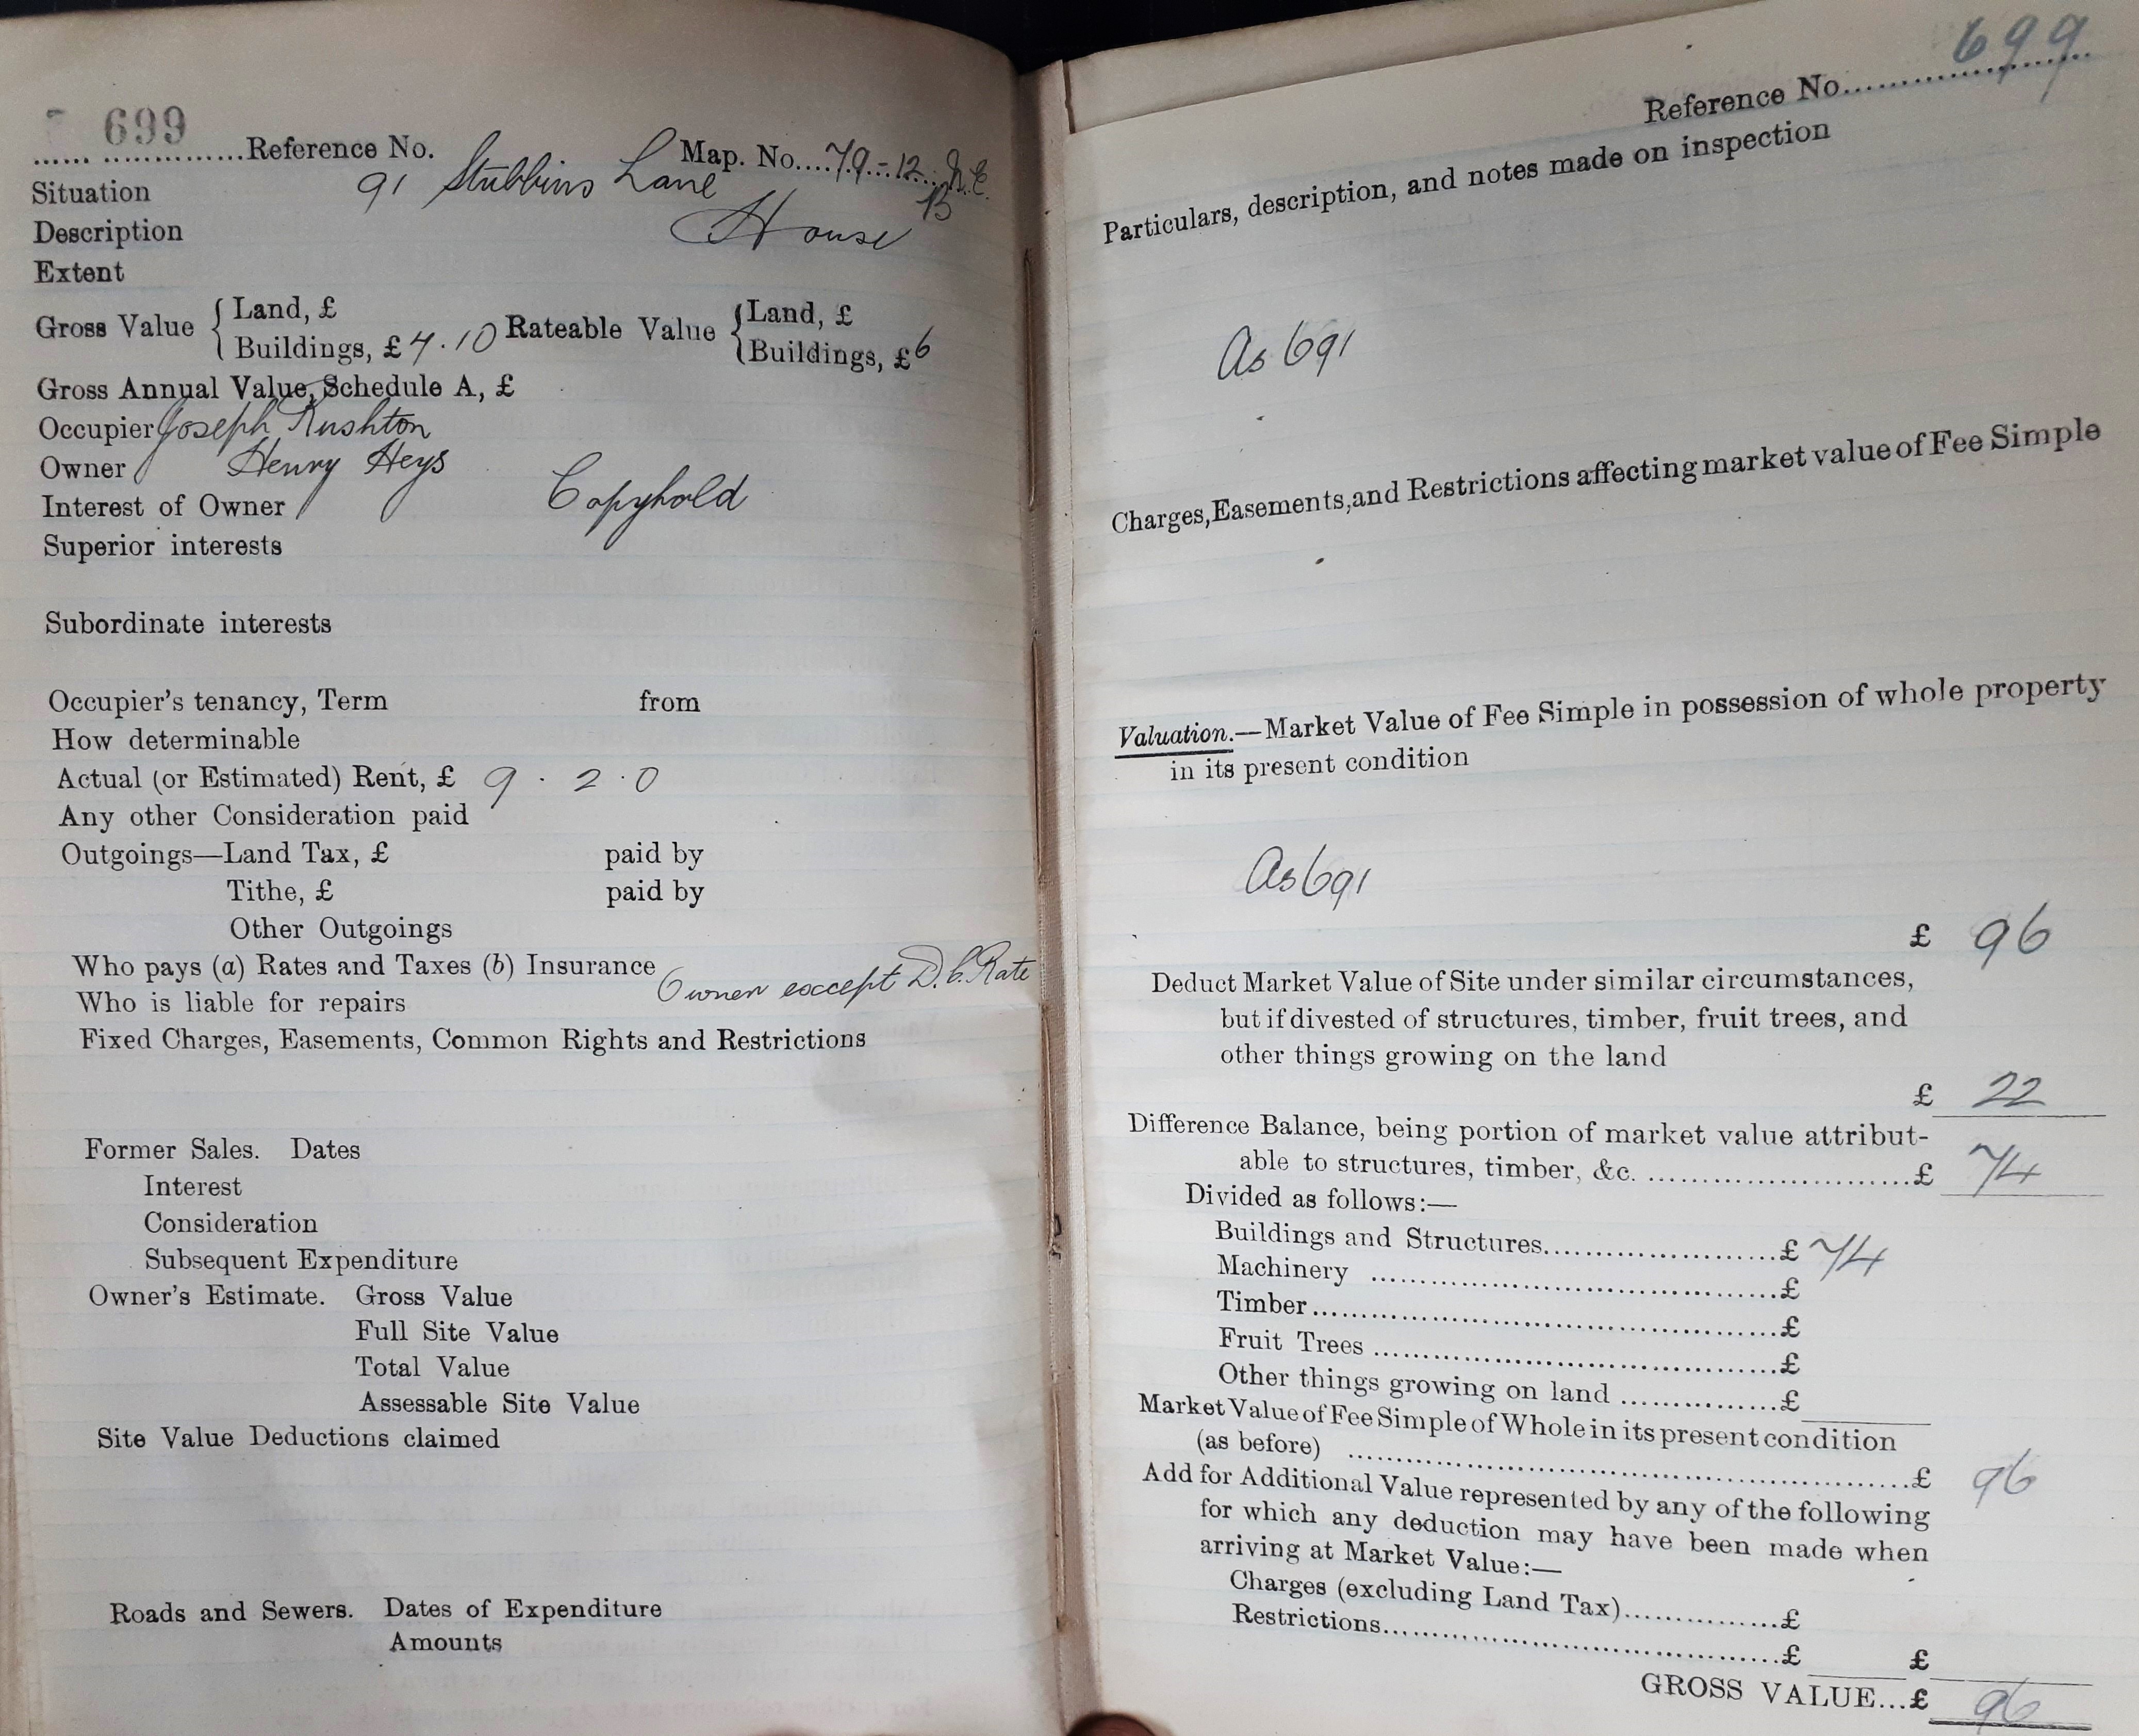 699
...... ..............Reference No. Map. No....79-12.N.E.
Situation 91 Stubbins Lane B
Description House
Extent
Gross Value { Land, £ Rateable Value { Land, £
Buildings, £ 7.10 Buildings, £6
Gross Annual Value, Schedule A, £
Occupier Joseph Rushton
Owner Henry Heys
Interest of Owner Copyhold
Superior interests
Subordinate interests
Occupier's tenancy, Term from
How determinable
Actual (or Estimated) Rent, £ 9 . 2 . 0
Any other Consideration paid
Outgoings—Land Tax, £ paid by
Tithe, £ paid by
Other Outgoings
Who pays (a) Rates and Taxes (b) Insurance Owner except D.C. Rate
Who is liable for repairs
Fixed Charges, Easements, Common Rights and Restrictions
Former Sales. Dates
Interest
Consideration
Subsequent Expenditure
Owner's Estimate. Gross Value
Full Site Value
Total Value
Assessable Site Value
Site Value Deductions claimed
Roads and Sewers. Dates of Expenditure
Amounts
Reference No. 699
Particulars, description, and notes made on inspection
As 691
Charges, Easements, and Restrictions affecting market value of Fee Simple
Valuation.—Market Value of Fee Simple in possession of whole property
in its present condition
As 691
£ 96
Deduct Market Value of Site under similar circumstances,
but if divested of structures, timber, fruit trees, and
other things growing on the land
£ 22
Difference Balance, being portion of market value attribut-
able to structures, timber, &c. ..........................£ 74
Divided as follows:—
Buildings and Structures......................£ 74
Machinery ......................................£
Timber...........................................£
Fruit Trees ......................................£
Other things growing on land ...............£
Market Value of Fee Simple of Whole in its present condition
(as before) ......................................................£ 96
Add for Additional Value represented by any of the following
for which any deduction may have been made when
arriving at Market Value:—
Charges (excluding Land Tax)...............£
Restrictions.......................................£ £
GROSS VALUE...£ 96